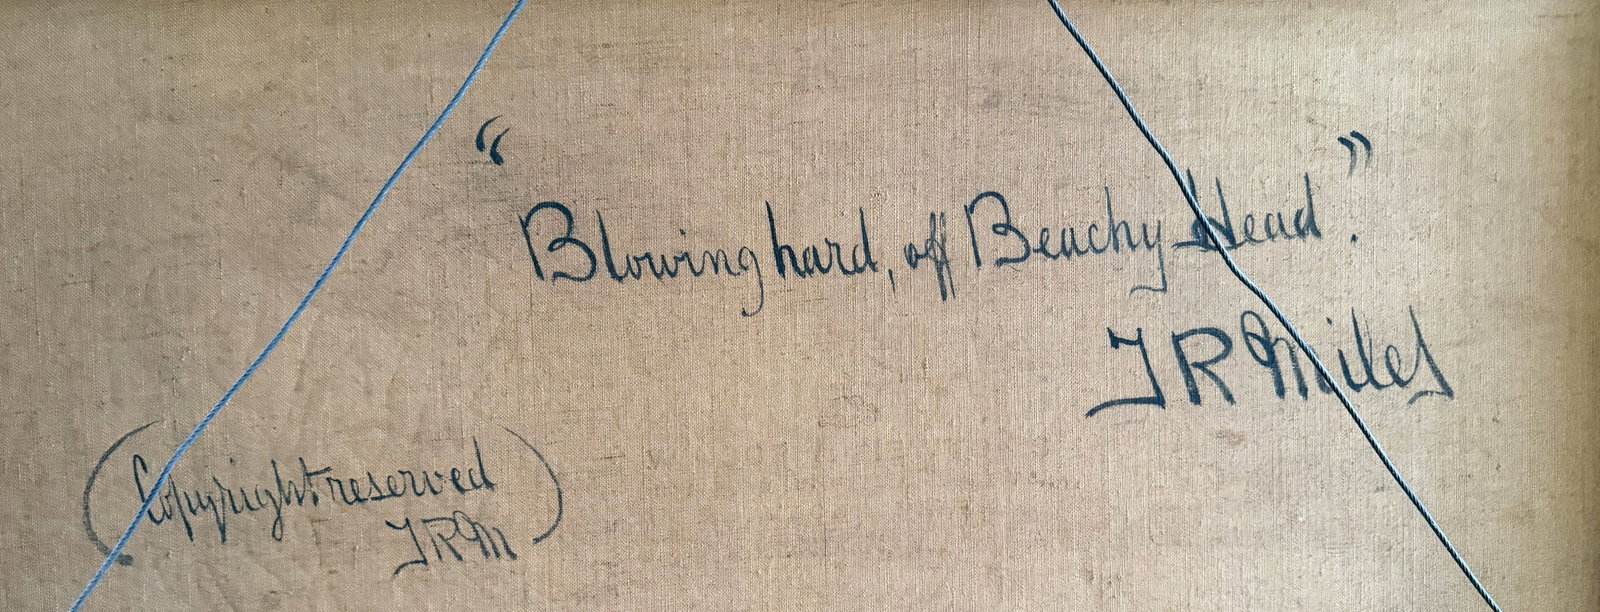 "Blowing hard, off Beachy Head."
T R Miles
(Copyright reserved
T R M)